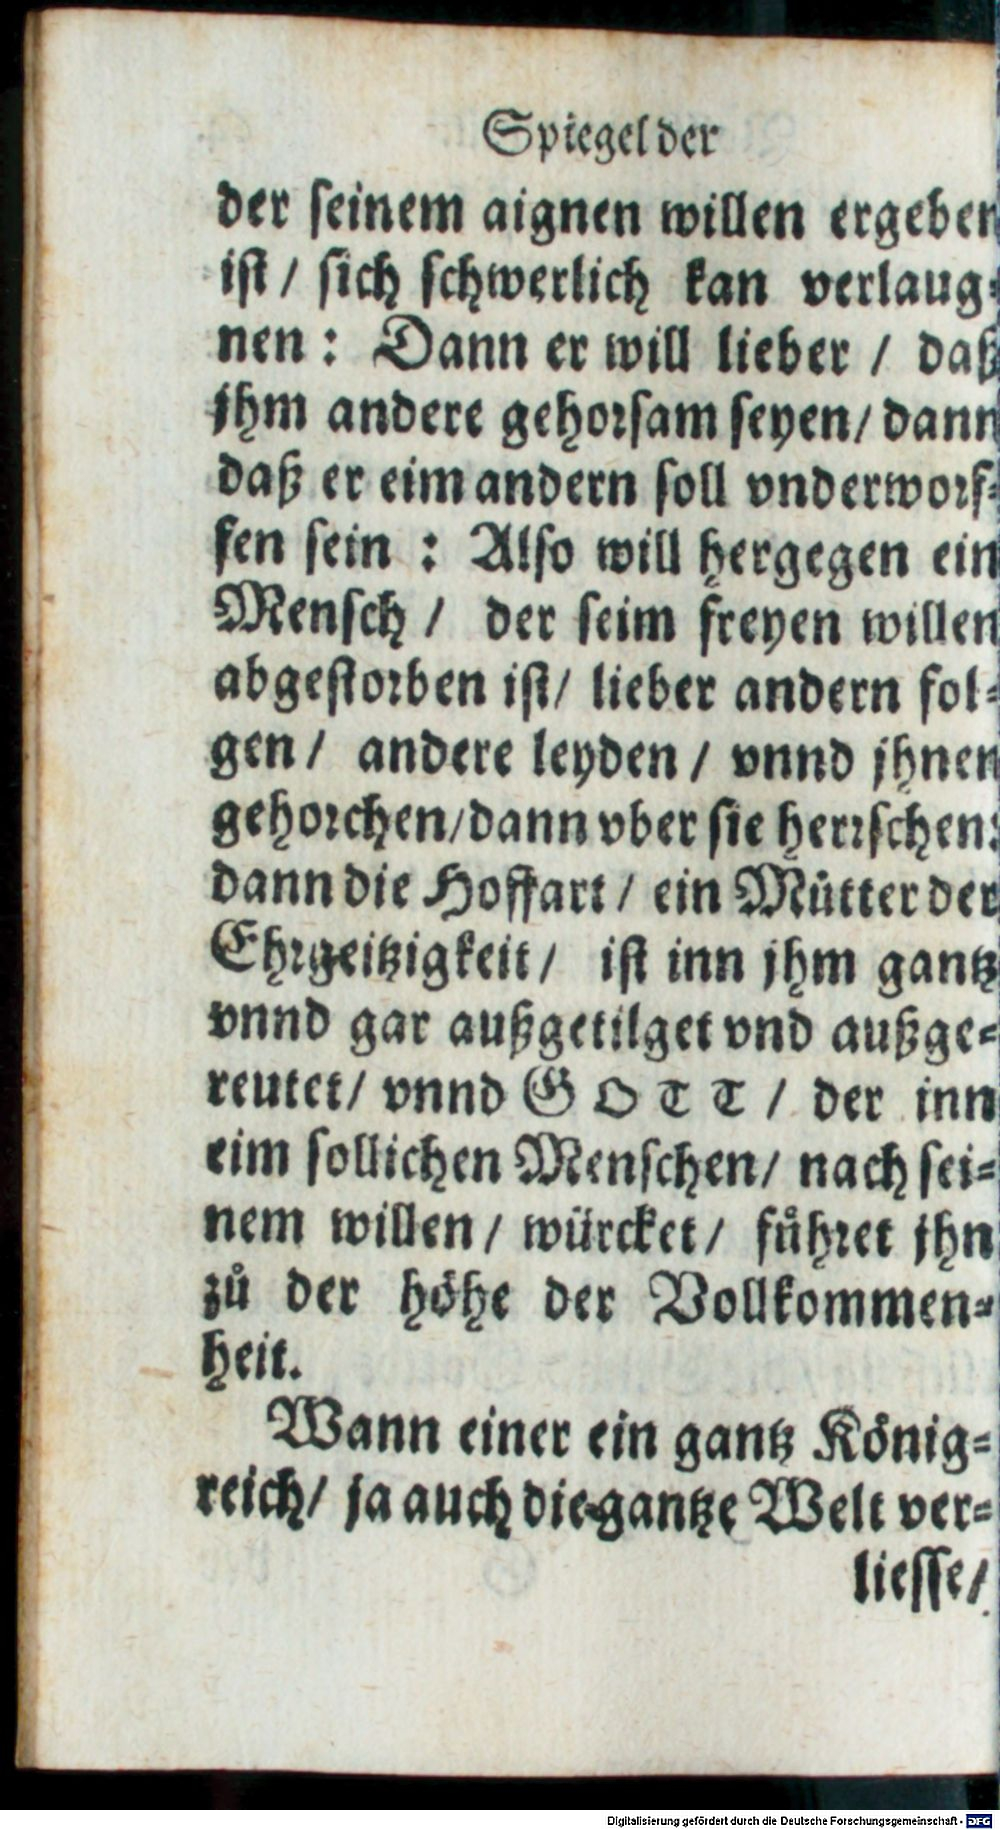 Spiegel der
der seinem aignen willen ergeben
ist / sich schwerlich kan verlaug-
nen : Dann er will lieber / daß
jhm andere gehorsam seyen / dann
daß er eim andern soll vnderworf-
fen sein : Also will hergegen ein
Mensch / der seim freyen willen
abgestorben ist / lieber andern fol-
gen / andere leyden / vnnd jhnen
gehorchen / dann vber sie herrschen:
dann die Hoffart / ein Mütter der
Ehrgeitzigkeit / ist inn jhm gantz
vnnd gar außgetilget vnd außge-
reutet / vnnd GOTT / der inn
eim sollichen Menschen / nach sei-
nem willen / würcket / fůhret jhn
zů der höhe der Vollkommen-
heit.
Wann einer ein gantz König-
reich / ja auch die gantze Welt ver-
liesse /
Digitalisierung gefördert durch die Deutsche Forschungsgemeinschaft - DFG